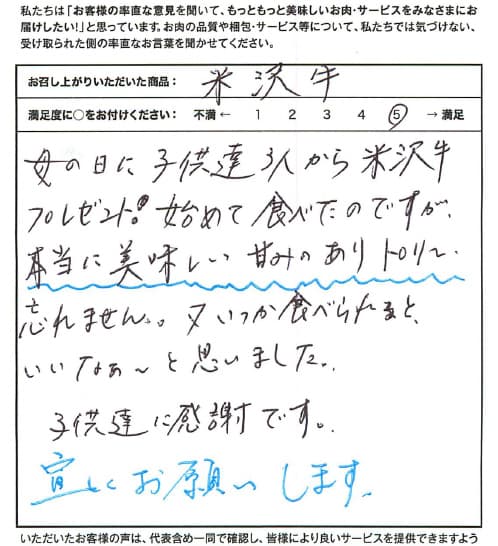 私たちは「お客様の率直な意見を聞いて、もっともっと美味しいお肉・サービスをみなさまにお
届けしたい!」と思っています。お肉の品質や梱包・サービス等について、私たちでは気づけない、
受け取られた側の率直なお言葉を聞かせてください。
お召し上がりいただいた商品： 米沢牛
満足度に○をお付けください： 不満 ← 1 2 3 4 5 → 満足
母の日に子供達3人から米沢牛
プレゼント。始めて食べたのですが、
本当に美味しい甘みのありトロリ〜
忘れません。又いつか食べられると、
いいなぁ〜と思いました。
子供達に感謝です。
宜しくお願いします。
いただいたお客様の声は、代表含め一同で確認し、皆様により良いサービスを提供できますよう